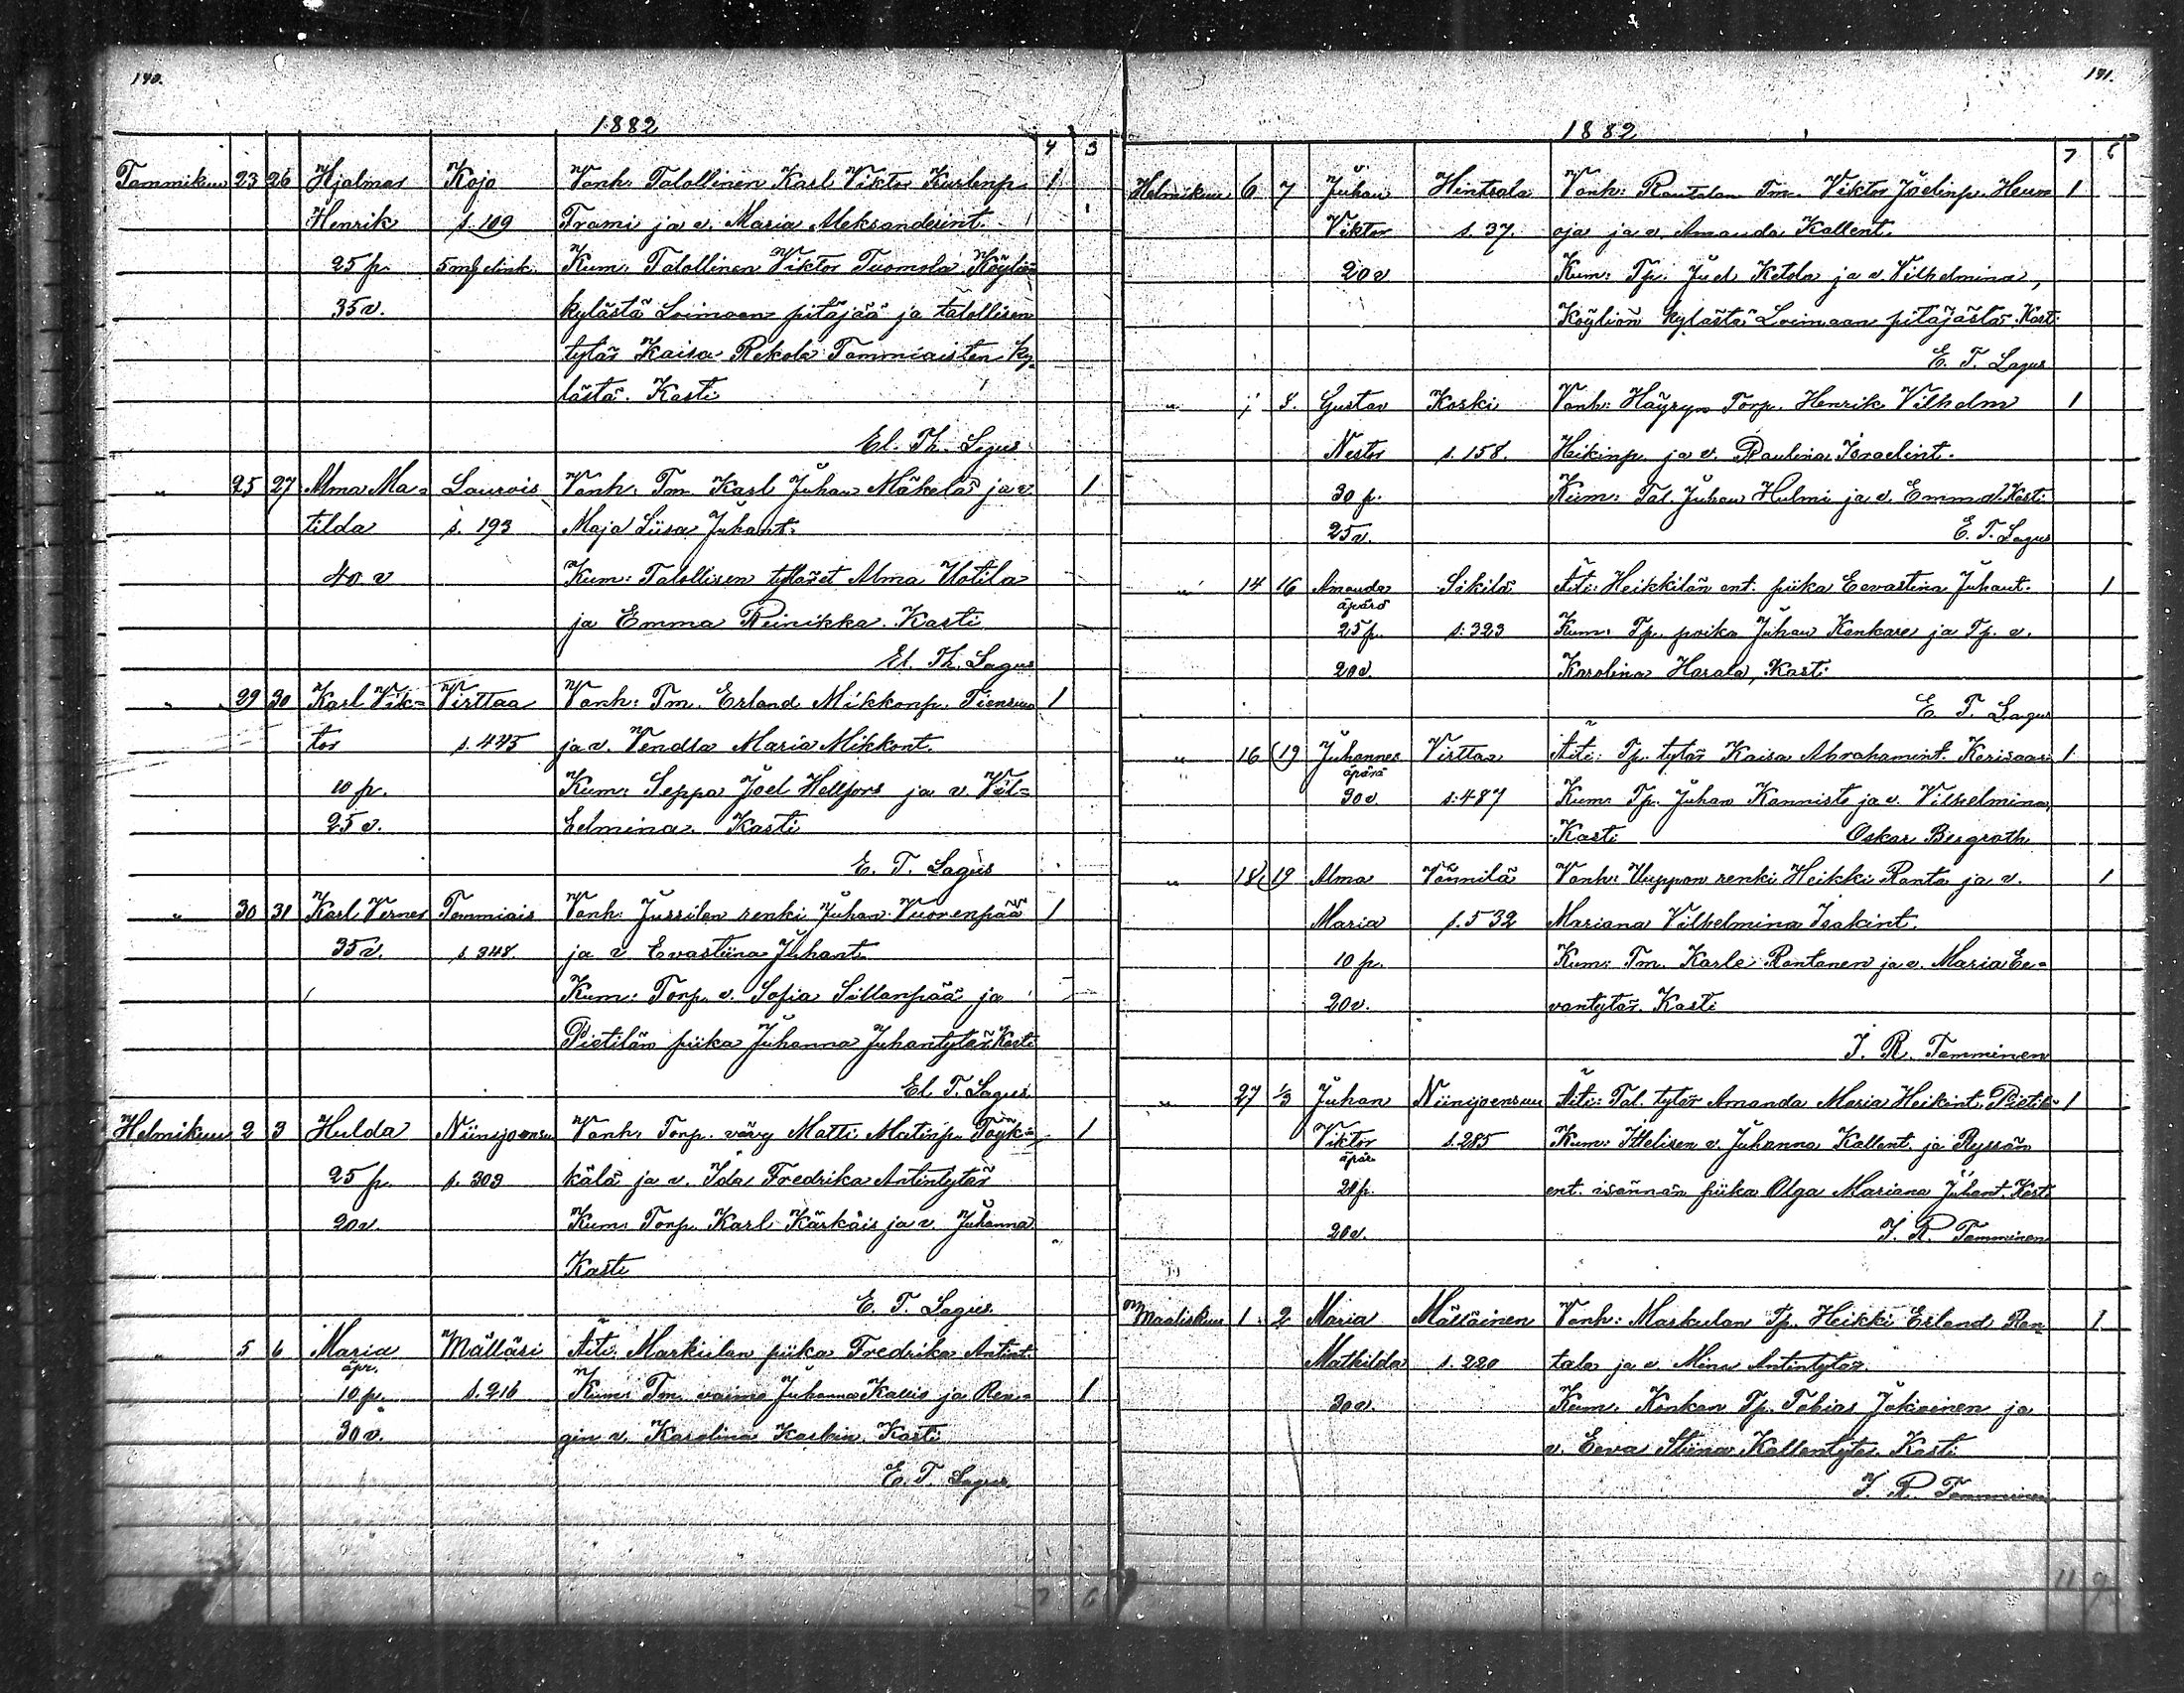 190.
1882
4 3
Tammikuu 23 26 Hjalmar Kojo Vanh: Talollinen Karl Viktor Kustinp. 1
Henrik s. 109 Frami ja v. Maria Aleksanderint.
25 p. Kum: Talollinen Viktor Tuomola Köyliö-
35 v. kylästä Loimaan pitäjää ja talollisen
tytär Kaisa Rekola Tammiaisten ky-
lästä. Kasti
El. Th. Lagus
„ 25 27 Alma Ma- Laurois Vanh: Tm Karl Juhan Mäkelä ja v. 1
tilda s. 193 Maja Liisa Juhant.
40 v Kum: Talollisen tyttäret Alma Uotila
ja Emma Riinikka. Kasti
El. Th. Lagus
„ 29 30 Karl Vik- Virttaa Vanh: Tm. Erland Mikkonp. Tiensuu 1
tor s. 445 ja v. Vendla Maria Mikkont.
10 p. Kum: Seppä Joel Hellfors ja v. Vil-
25 v. helmina. Kasti
E. T. Lagus
„ 30 31 Karl Verner Tammiais Vanh: Jussilan renki Juhan Vuorenpää 1
35 v. s. 348. ja v Evastiina Juhant.
Kum: Torp. v. Sofia Sillanpää ja
Pietilän piika Juhanna Juhantytär. Kasti
El. T. Lagus
Helmikuu 2 3 Hulda Niinijoensu Vanh: Torp. vävy Matti Matinp. Töyk- 1
25 p. s. 303 kälä ja v. Ida Fredrika Antintytär
20 v. Kum: Torp. Karl Kärkäis ja v. Juhanna
Kasti
E. T. Lagus.
„ 5 6 Maria Mälläsi Äiti: Markulan piika Fredrika Antint.
äpr.
10 p. s. 216 Kum: Tm. vaimo Juhanna Kallis ja Ren- 1
30 v. gin v. Karolina Kaskin. Kasti
E. T. Lagus
7 6
191.
1882
7 6
Helmikuu 6 7 Juhan Hintsala Vanh: Rautalan Tm. Viktor Joelinp. Heun 1
Viktor s. 37. oja ja v. Amanda Kallent.
20 v Kum: Tp. Juel Ketola ja v. Vilhelmina,
Köyliön kylästä Loimaan pitäjästä. Kast.
E. T. Lagus
„ 8. Gustav Koski Vanh: Häyryn Torp. Henrik Vilhelm 1
Nestor s. 158. Heikinp. ja v. Paulina Israelint.
30 p. Kum: Tal. Juhan Hulmi ja v. Emma. Kasti
25 v. E. T. Lagus
„ 14 16 Amanda Sikilä Äiti: Heikkilän ent. piika Eevastina Juhant. 1
äpärä
25 p. s. 323 Kum: Tp. poika Juhan Kankare ja Tp. v.
20 v. Karolina Harala, Kast:
E. T. Lagus
„ 16 19 Juhannes Virttaa Äiti: Tp. tytär Kaisa Abrahamint. Kerisaari 1
äpärä
30 v. s. 487 Kum: Tp. Juhan Kannisto ja v. Vilhelmina,
Kasti Oskar Bergroth
„ 18 19 Alma Vännilä Vanh: Uuppon renki Heikki Ranta ja v. 1
Maria s. 532 Mariana Vilhelmina Isakint.
10 p. Kum: Tm. Karle Rantanen ja v. Maria Ee-
20 v. vantytär. Kasti
J. R. Tamminen
„ 27 1/3 Juhan Niinijoensuu Äiti: Tal. tytär Amanda Maria Heikint. Pietilä 1
Viktor s. 285 Kum: Itselisen v. Juhanna Kallent. ja Ryssän
äpär.
20 p. ent. isännän piika Olga Mariana Juhant. Kasti
20 v. J. R. Tamminen
Maaliskuu 1. 2 Maria Mälläinen Vanh: Markulan Tp. Heikki Erland Ran- 1
Mathilda s. 220 tala ja v. Mina Antintytär.
30 v. Kum: Konkan Tp. Tobias Jokinen ja
v. Eeva Stiina Kallentytär. Kasti
J. R. Tamminen
11 9